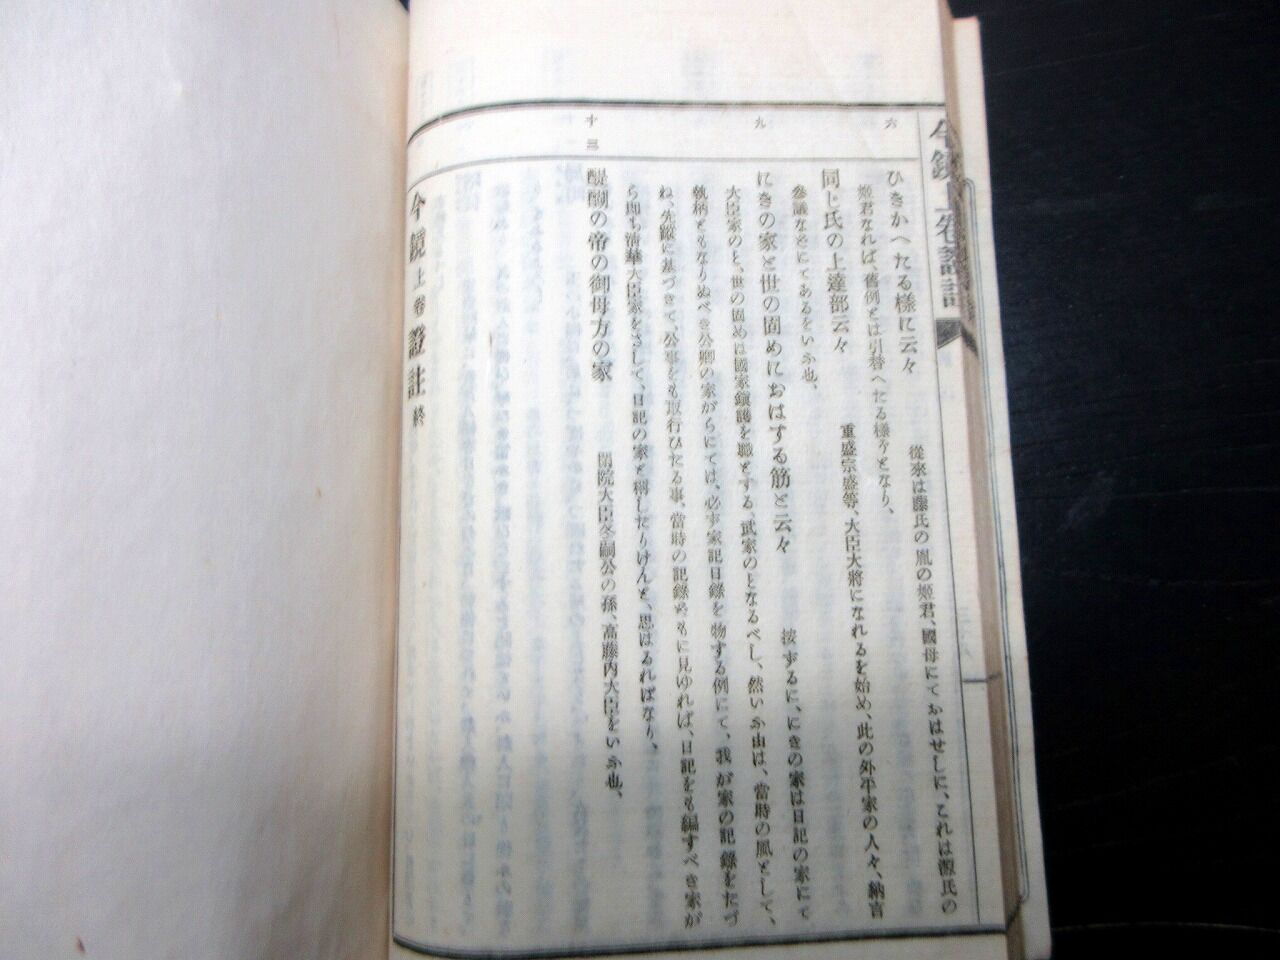 今鏡上卷證註
六
ひきかへたる様に云々
從來は藤氏の胤の姫君、國母にておはせしに、これは源氏の
姫君なれば、舊例とは引替へたる様々となり、
同じ氏の上達部云々
重盛宗盛等、大臣大將になれるを始め、此の外平家の人々、納言
參議などにてあるをいふ也、
九
にきの家と世の固めにおはする筋と云々
按ずるに、にきの家は日記の家にて
大臣家のと、世の固めは國家鎭護を職とする、武家のとなるべし、然いふ由は、當時の風として、
執柄ともなりぬべき公卿の家がらにては、必ず家記日錄を物する例にて、我が家の記錄をたづ
ね、先蹤に基づきて、公事をも取行ひたる事、當時の記錄どもに見ゆれば、日記をも編すべき家が
ら即ち清華大臣家をさして、日記の家と稱したりけんと、思はるればなり、
十三
醍醐の帝の御母方の家
閑院大臣冬嗣公の孫、高藤内大臣をいふ也、
今鏡上卷證註終